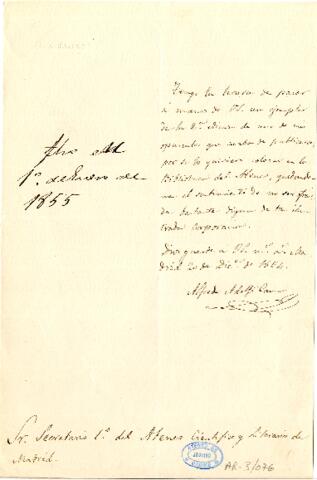 Tengo la honra de pasar
á manos de V. un ejemplar
de la 2ª de uno de mis
opusculos que acabo de publicar,
por si lo quisiere colocar en la
Biblioteca del Ateneo, quedando-
me el sentimiento de no ser
bastante digna de tan ilus-
trada corporacion.
Dios guarde á V. m.s a.s Ma-
drid 20 de Dic.e de 1854.
Alfredo Adolfo Camus
Jta del
1º de Enero de
1855
Sr. Secretario 1º del Ateneo Cientifico y Literario de
Madrid.
AR-3/076